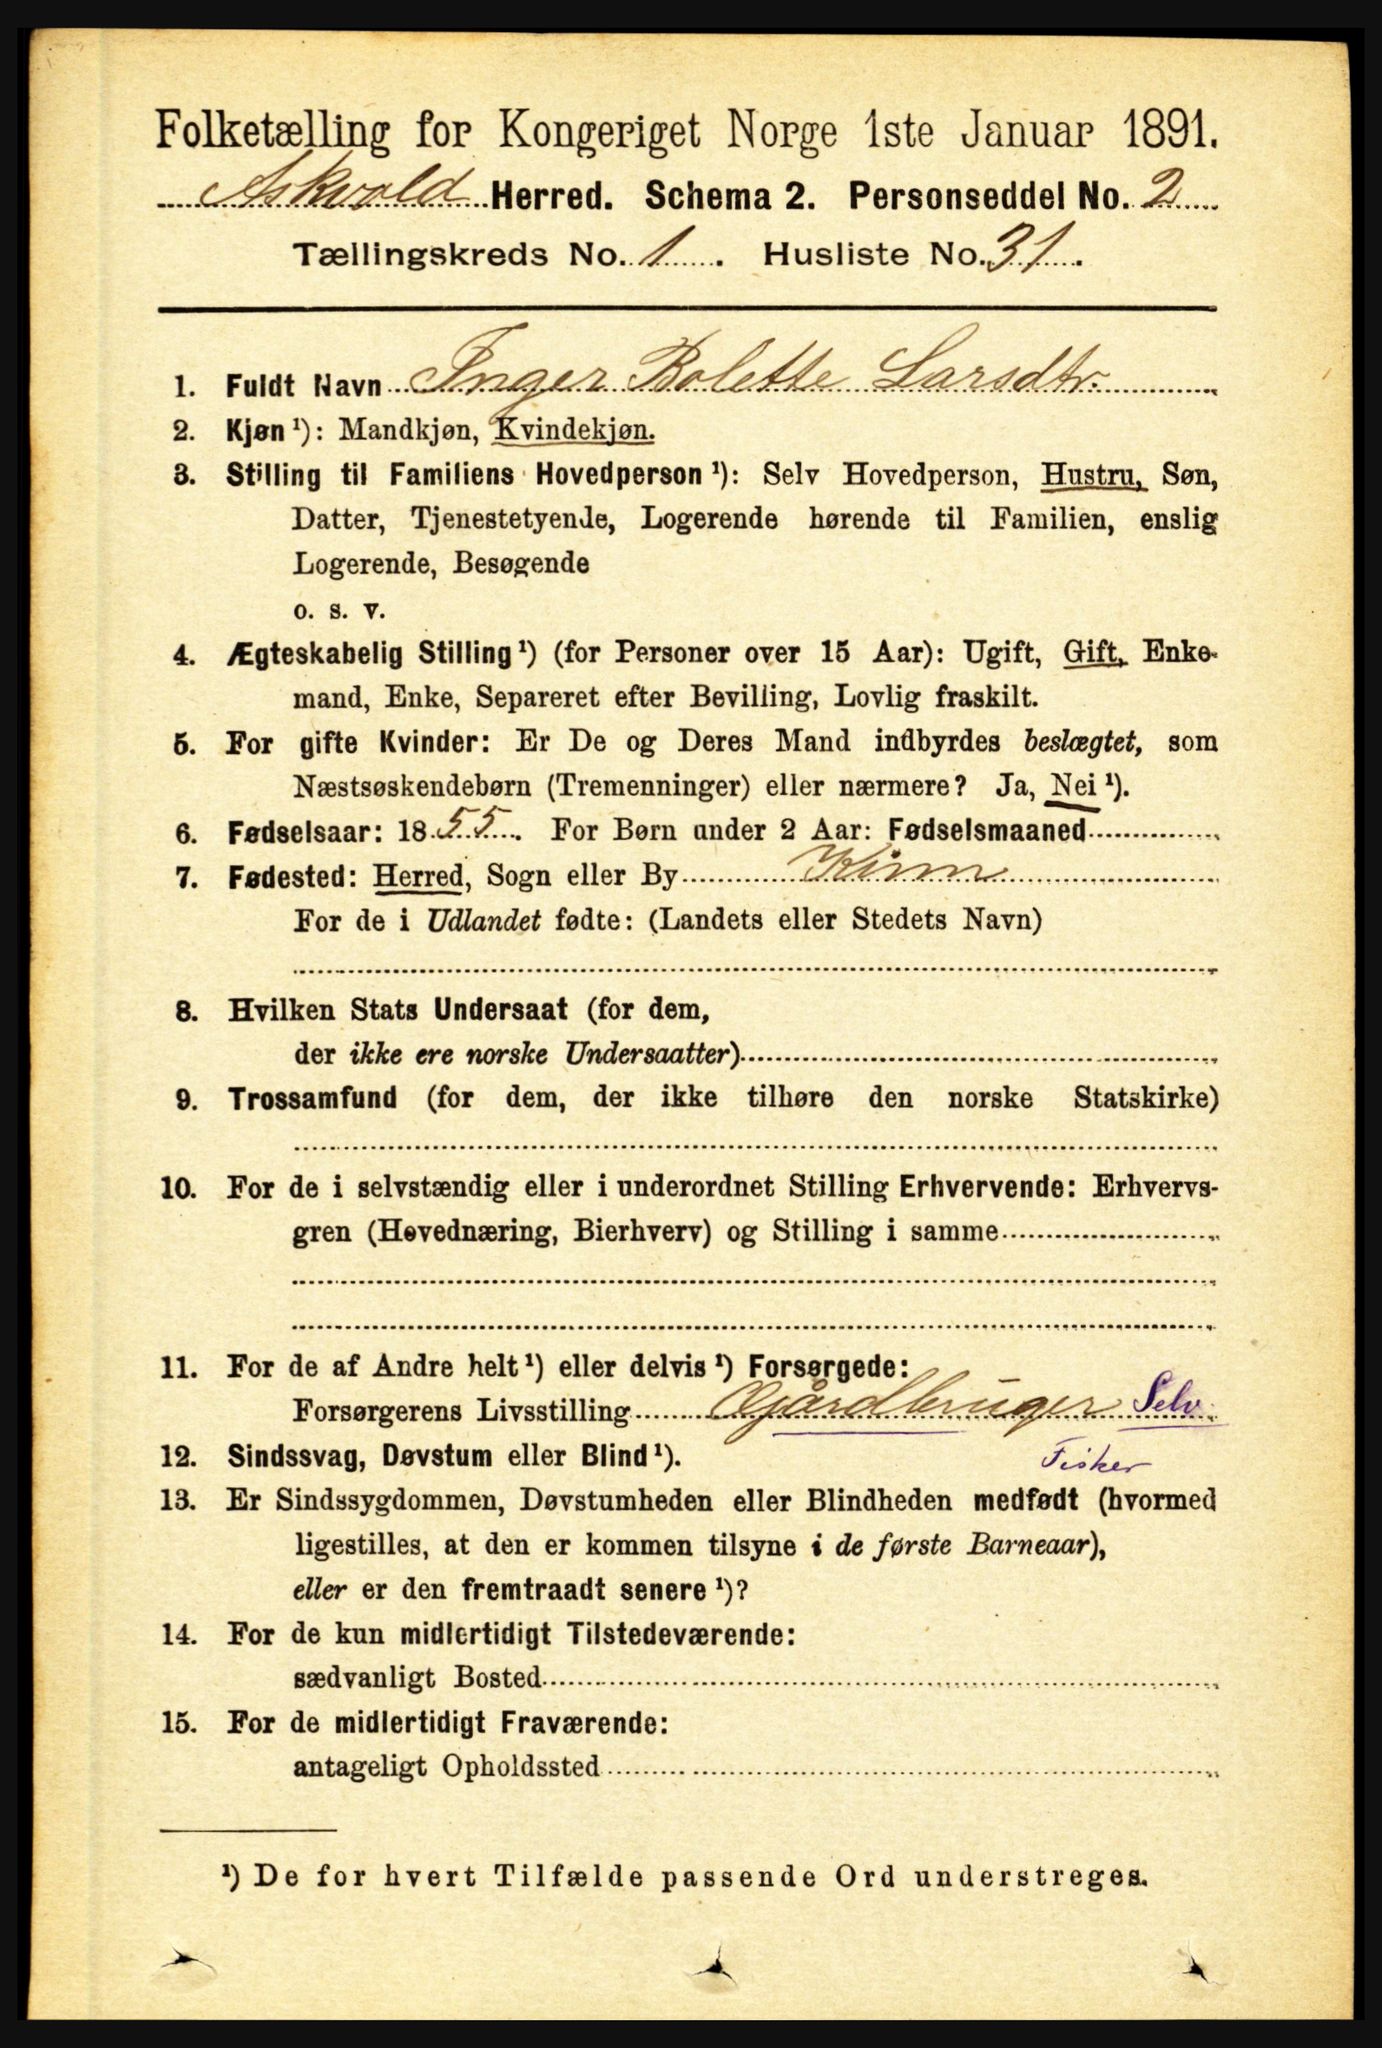 Folketælling for Kongeriget Norge 1ste Januar 1891.
Askvold Herred. Schema 2. Personseddel No. 2
Tællingskreds No. 1. Husliste No. 31.
1. Fuldt Navn Inger Bolette Larsdtr.
2. Kjøn ¹): Mandkjøn, Kvindekjøn.
3. Stilling til Familiens Hovedperson ¹): Selv Hovedperson, Hustru, Søn,
Datter, Tjenestetyende, Logerende hørende til Familien, enslig
Logerende, Besøgende
o. s. v.
4. Ægteskabelig Stilling ¹) (for Personer over 15 Aar): Ugift, Gift, Enke-
mand, Enke, Separeret efter Bevilling, Lovlig fraskilt.
5. For gifte Kvinder: Er De og Deres Mand indbyrdes beslægtet, som
Næstsøskendebørn (Tremenninger) eller nærmere? Ja, Nei ¹).
6. Fødselsaar: 1855. For Børn under 2 Aar: Fødselsmaaned
7. Fødested: Herred, Sogn eller By Kinn
For de i Udlandet fødte: (Landets eller Stedets Navn)
8. Hvilken Stats Undersaat (for dem,
der ikke ere norske Undersaatter)
9. Trossamfund (for dem, der ikke tilhøre den norske Statskirke)
10. For de i selvstændig eller i underordnet Stilling Erhvervende: Erhvervs-
gren (Hovednæring, Bierhverv) og Stilling i samme
11. For de af Andre helt ¹) eller delvis ¹) Forsørgede:
Forsørgerens Livsstilling Gjårdbruger Selv.
Fisker
12. Sindssvag, Døvstum eller Blind ¹).
13. Er Sindssygdommen, Døvstumheden eller Blindheden medfødt (hvormed
ligestilles, at den er kommen tilsyne i de første Barneaar),
eller er den fremtraadt senere ¹)?
14. For de kun midlertidigt Tilstedeværende:
sædvanligt Bosted
15. For de midlertidigt Fraværende:
antageligt Opholdssted
¹) De for hvert Tilfælde passende Ord understreges.